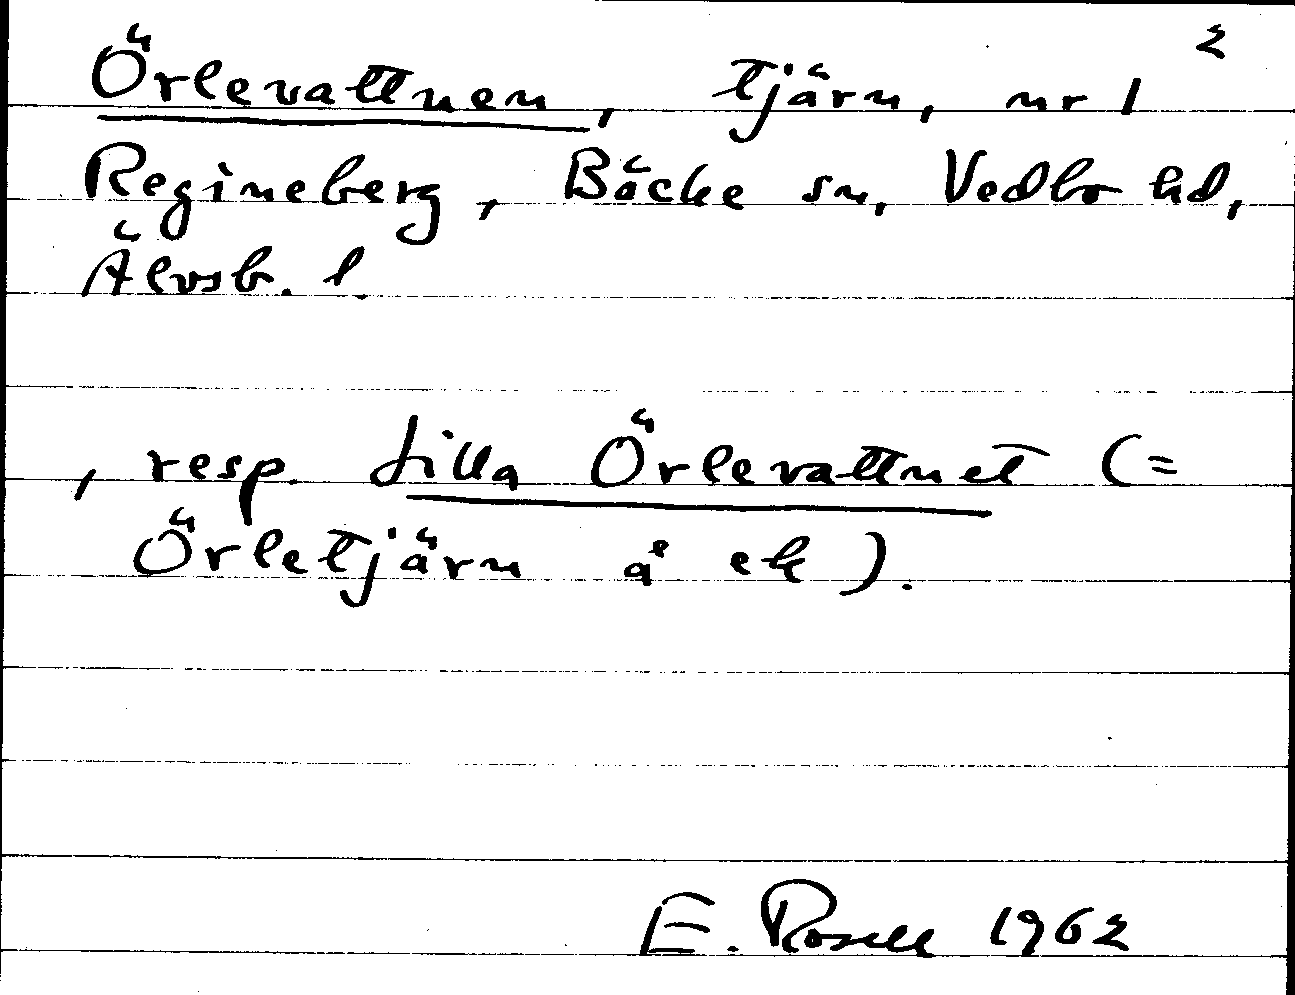 2
Örlevattnen, tjärn, nr 1
Regineberg, Bäcke sn, Vedbo hd,
Älvsb. l.
, resp. Lilla Örlevattnet (=
Örletjärn å ek).
E. Rosell 1962